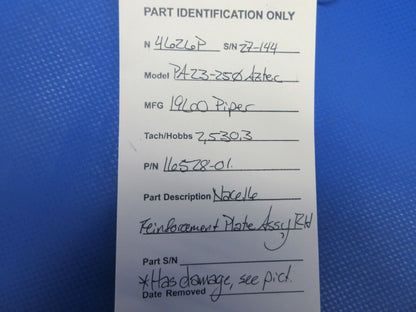 PART IDENTIFICATION ONLY
N 4626P S/N 27-144
Model PA-23-250 Aztec
MFG 1960 Piper
Tach/Hobbs 2,530.3
P/N 16528-01
Part Description Nacelle
Reinforcement Plate Assy RH
Part S/N
*Has damage, see pict.
Date Removed